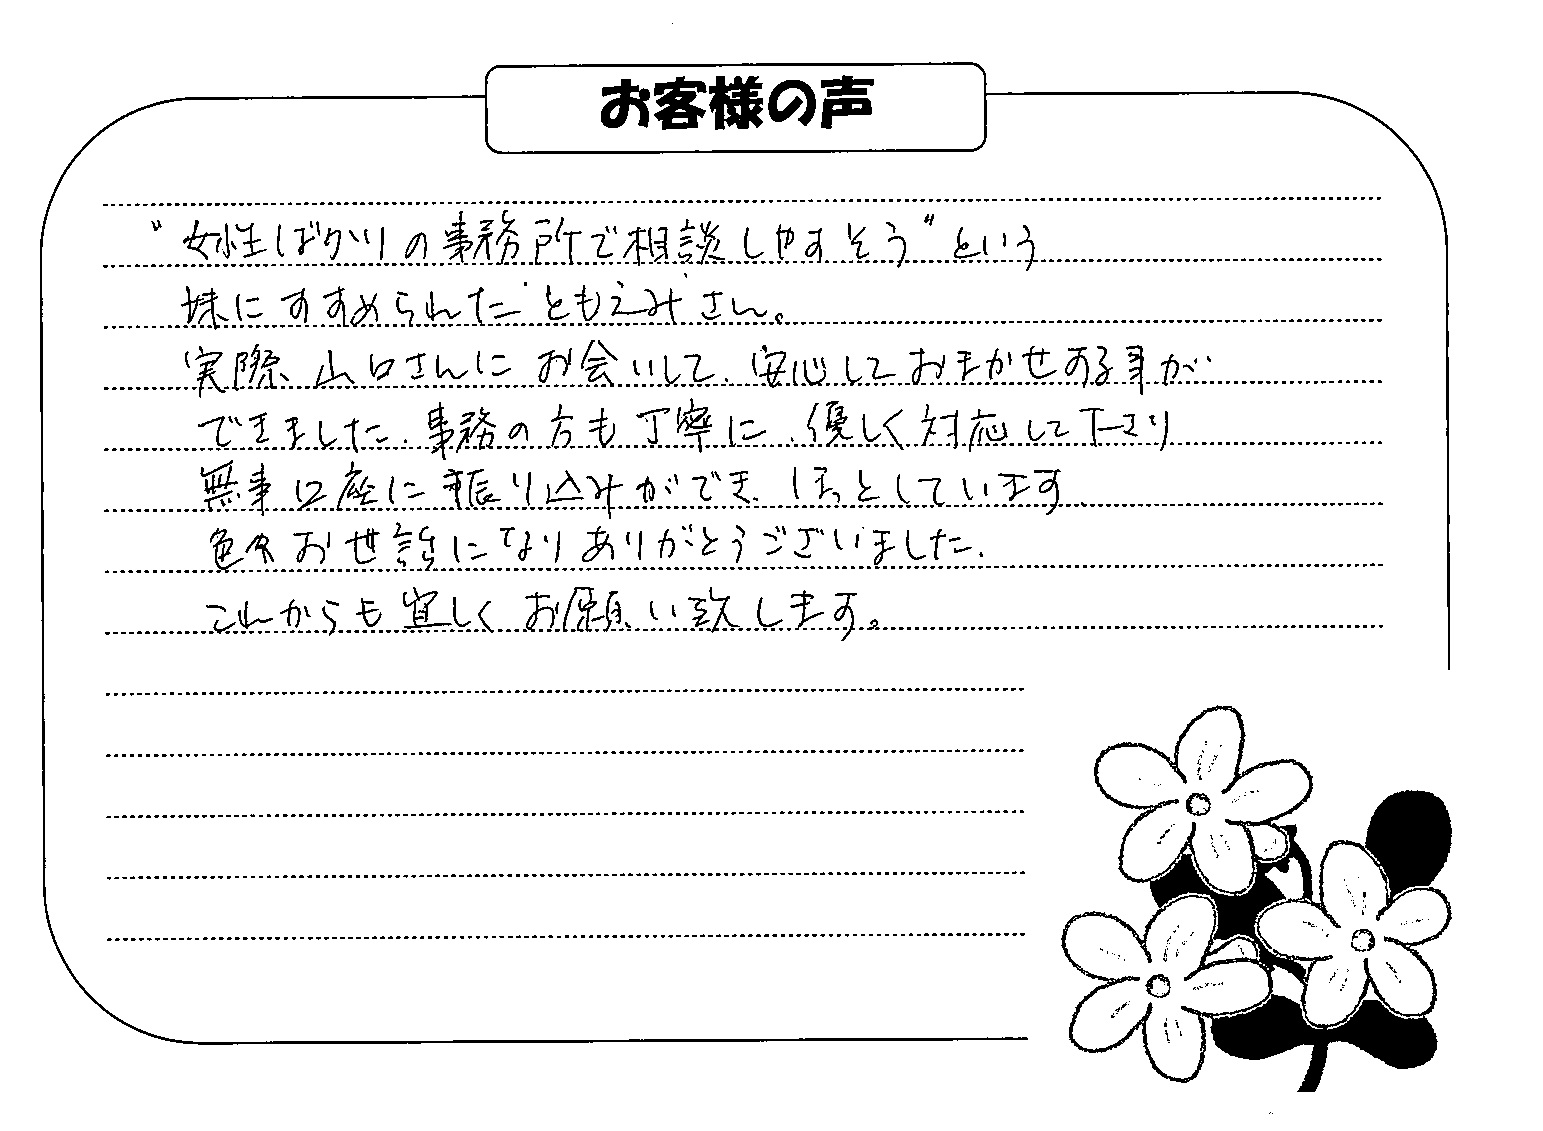 お客様の声
〝女性ばかりの事務所で相談しやすそう〟という
妹にすすめられた〝ともえみ〟さん。
実際 山口さんに お会いして、安心しておまかせする事が
できました。事務の方も 丁寧に、優しく対応して下さり
無事 口座に 振り込みができ、ほっとしています。
色々 お世話になり ありがとうございました。
これからも 宜しく お願い致します。